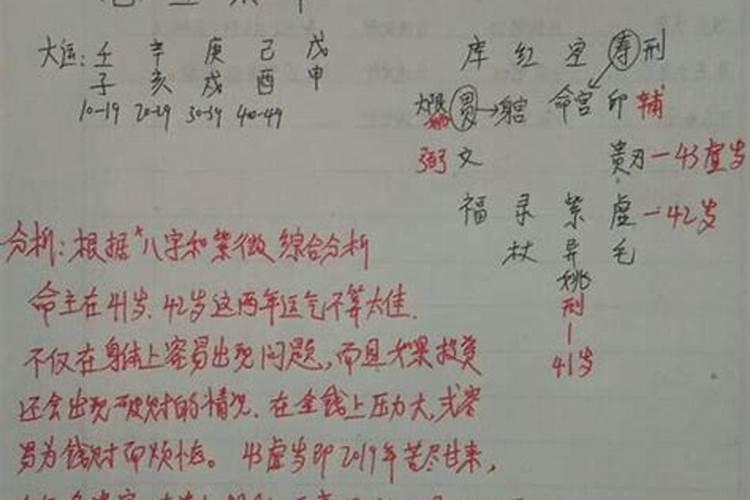 大运: 壬 辛 庚 己 戊
子 亥 戌 酉 申
10-19 20-29 30-39 40-49
库 红 空 寿 刑
大限 贯 → 身宫 命宫 印 辅
弼 文 贵刃—43虚岁
福 录 紫 虚—42岁
杖 异 毛
姚
刑
41岁
分析: 根据八字和紫微综合分析
命主在41岁、42岁这两年运气不算太佳.
不仅在身体上容易出现问题,而且如果投资
还会出现破财的情况、在金钱上压力大,或容
易为钱财而烦恼。43虚岁即2019年苦尽甘来,